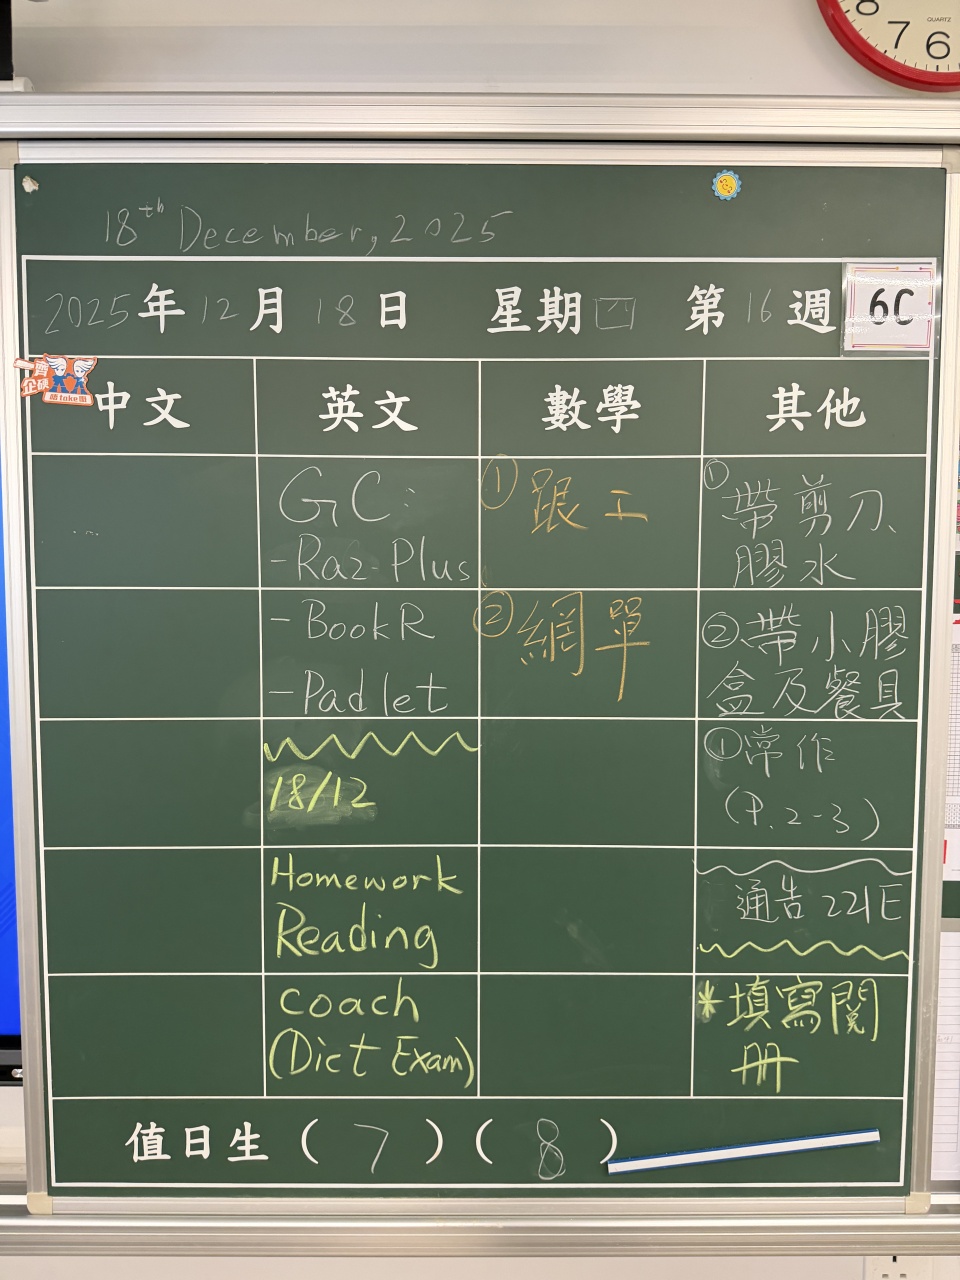 8 7 6
QUARTZ
18th December, 2025
2025年12月18日 星期四 第16週 6C
一齊企硬
唔take嘢
中文 英文 數學 其他
GC:
-Raz-Plus
-BookR
-Padlet
18/12
Homework
Reading
coach
(Dict Exam)
①跟工
②網單
①帶剪刀、
膠水
②帶小膠
盒及餐具
①常作
(P.2-3)
通告221E
*填寫閱
冊
值日生(7)(8)